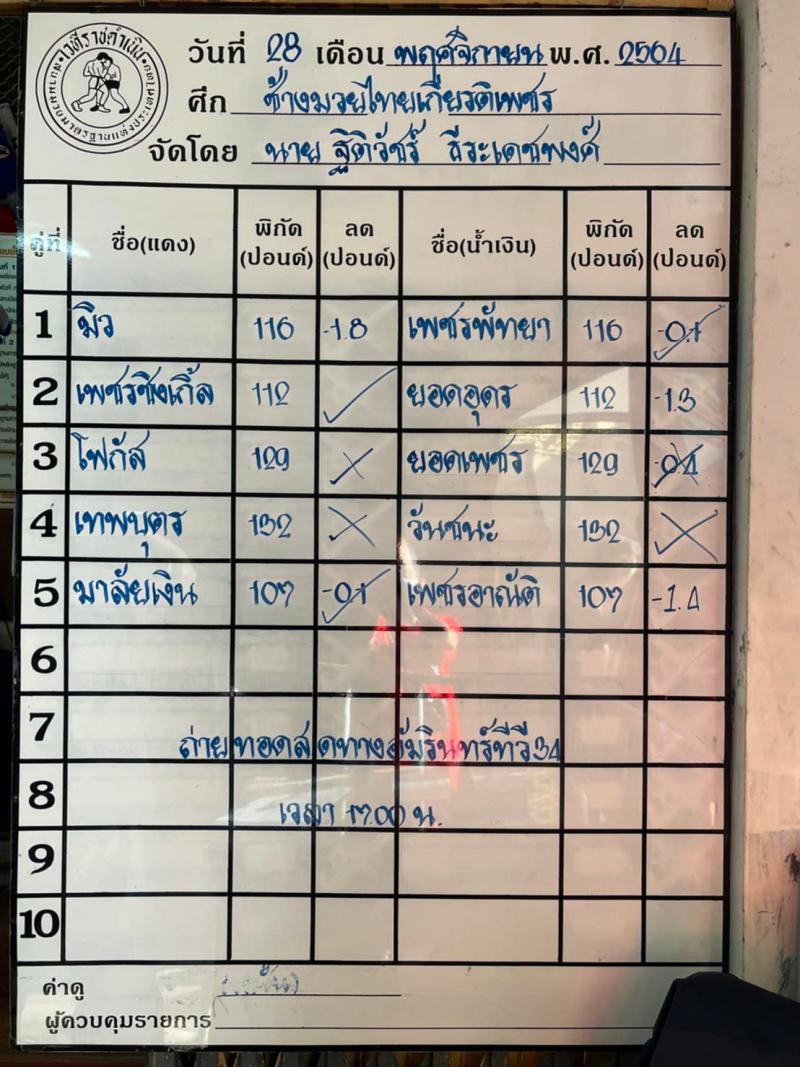 เวทีราชดำเนิน
สนามมวยมาตรฐานแห่งประเทศไทย
วันที่ 28 เดือน พฤศจิกายน พ.ศ. 2564
ศึก ช้างมวยไทยเกียรติเพชร
จัดโดย นาย ฐิติวัชร์ ธีระเดชพงศ์
คู่ที่ ชื่อ(แดง) พิกัด (ปอนด์) ลด (ปอนด์) ชื่อ(น้ำเงิน) พิกัด (ปอนด์) ลด (ปอนด์)
1 มิว 116 -1.8 เพชรพัทยา 116 -0.1
2 เพชรซิงเกิ้ล 112 ✓ ยอดอุดร 112 -1.3
3 โฟกัส 129 ✗ ยอดเพชร 129 -0.4
4 เทพบุตร 132 ✗ วันชนะ 132 ✗
5 มาลัยเงิน 107 -0.1 เพชรอาณัติ 107 -1.4
6
7 ถ่ายทอดสดทางอัมรินทร์ทีวี 34
8 เวลา 17.00 น.
9
10
ค่าดู
ผู้ควบคุมรายการ